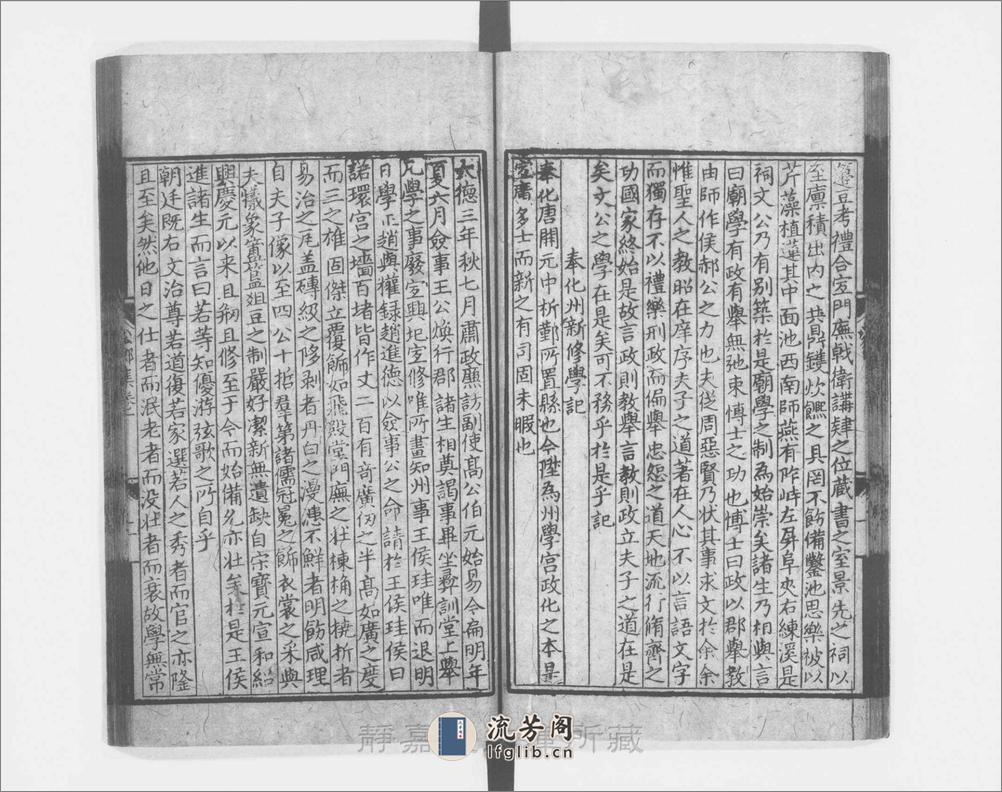 籩豆考禮合宜門廡戟衛講肄之位藏書之室景先之祠以
至廪積出内之共鼎鑊炊爨之具罔不飭備鑿池思樂被以
芹藻植蓮其中面池西南師燕有阼峙左屏阜夾右練溪是
祠文公乃有别築於是廟學之制為始崇矣諸生乃相與言
曰廟學有政有舉無弛東博士之功也博士曰政以郡舉教
由師作侯郝公之力也夫從周惡賢乃狀其事求文於余余
惟聖人之教昭在庠序夫子之道著在人心不以言語文字
而獨存不以禮樂刑政而偏舉忠恕之道天地流行脩齊之
功國家終始是故言政則教舉言教則政立夫子之道在是
矣文公之學在是矣可不務乎於是乎記
奉化州新修學記
奉化唐開元中析鄞所置縣也今陞為州學宫政化之本是
宜庸多士而新之有司固未暇也
大德三年秋七月肅政廉訪副使高公伯元始易今扁明年
夏六月僉事王公煥行郡諸生相奠謁事畢坐彛訓堂上舉
凡學之事廢宜興圮宜修唯所畫知州事王侯珪唯而退明
日學正趙與權録趙進德以僉事公之命請於王侯珪侯曰
諾環宫之墻百堵皆作丈二百有奇廣仭之半高如廣之度
而三之雄固傑立覆飾如飛殿堂門廡之壮棟桷之橈折者
易治之瓦盖磚級之陊剥者丹白之漫漶不鮮者明飭咸理
自夫子像以至四公十哲羣第諸儒冠冕之飾衣裳之采與
夫犧象簠簋俎豆之制嚴好潔新無遺缺自宋寶元宣和紹
興慶元以来且刱且修至于今而始備允亦壮矣於是王侯
進諸生而言曰若等知優游弦歌之所自乎
朝廷既右文治尊若道復若家選若人之秀者而官之亦隆
且至矣然他日之仕者而泯老者而没壮者而衰故學無常
流芳阁
lfglib.cn
静嘉 所藏